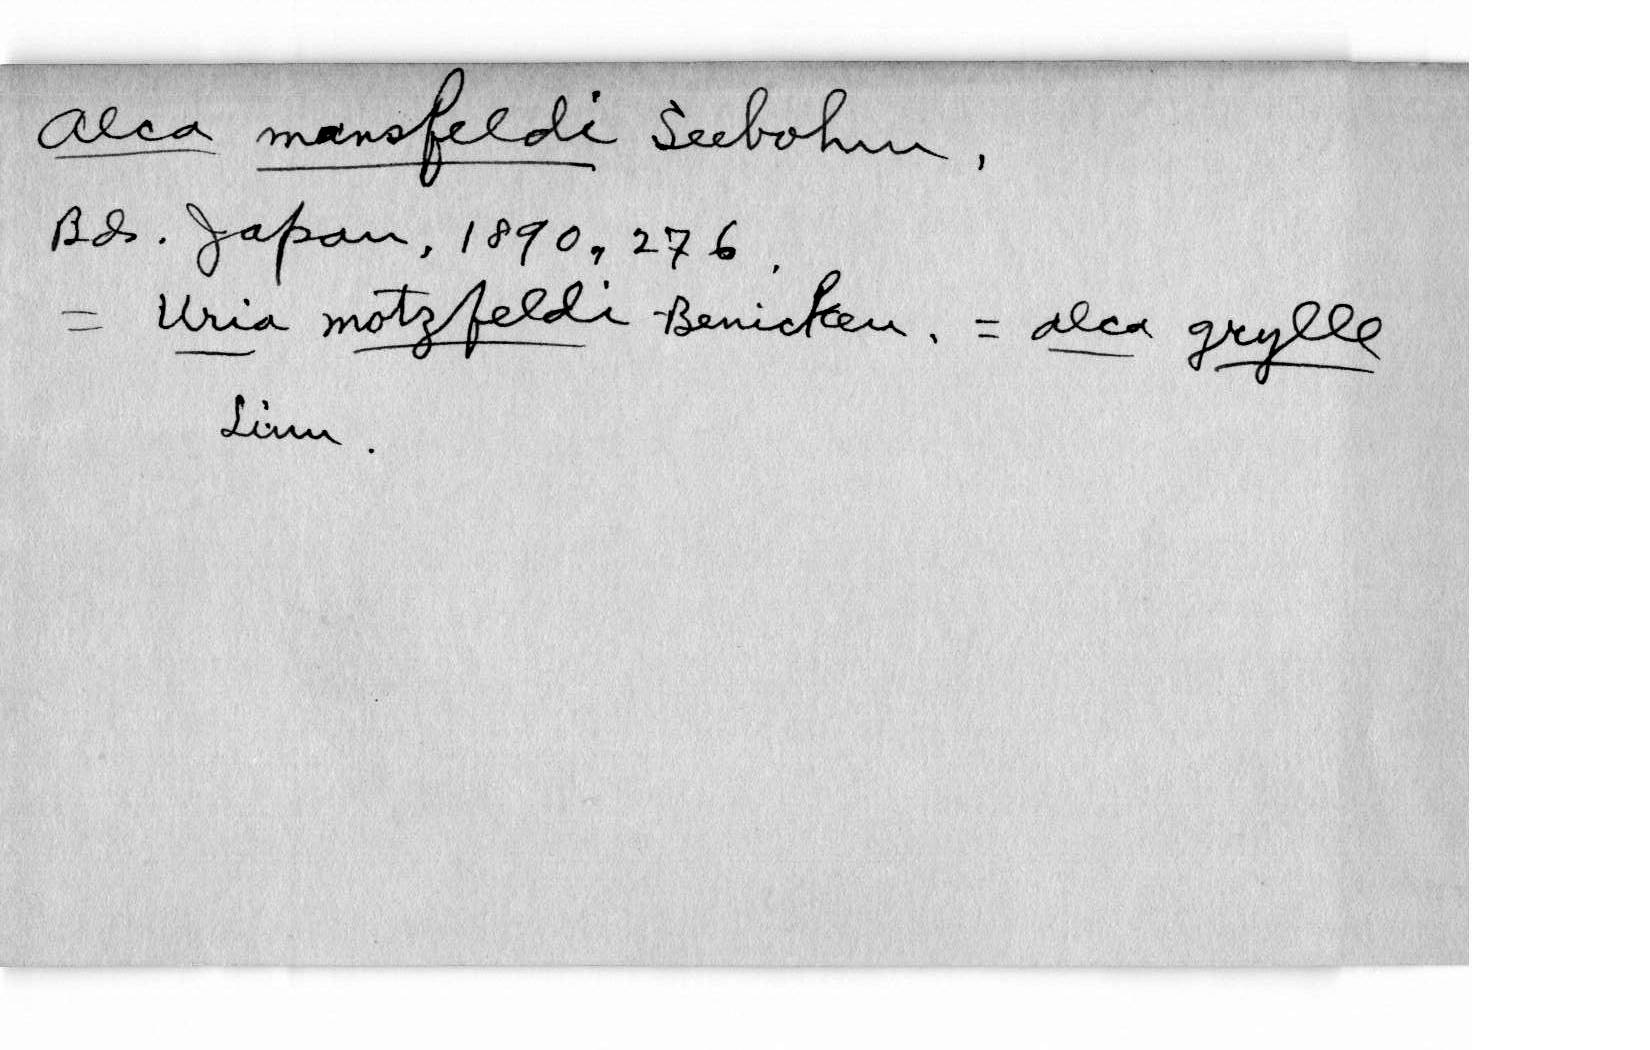 Alca mansfeldi Seebohm,
Bds. Japan, 1890, 276.
= Uria motzfeldi Benicken. = Alca grylle
Linn.